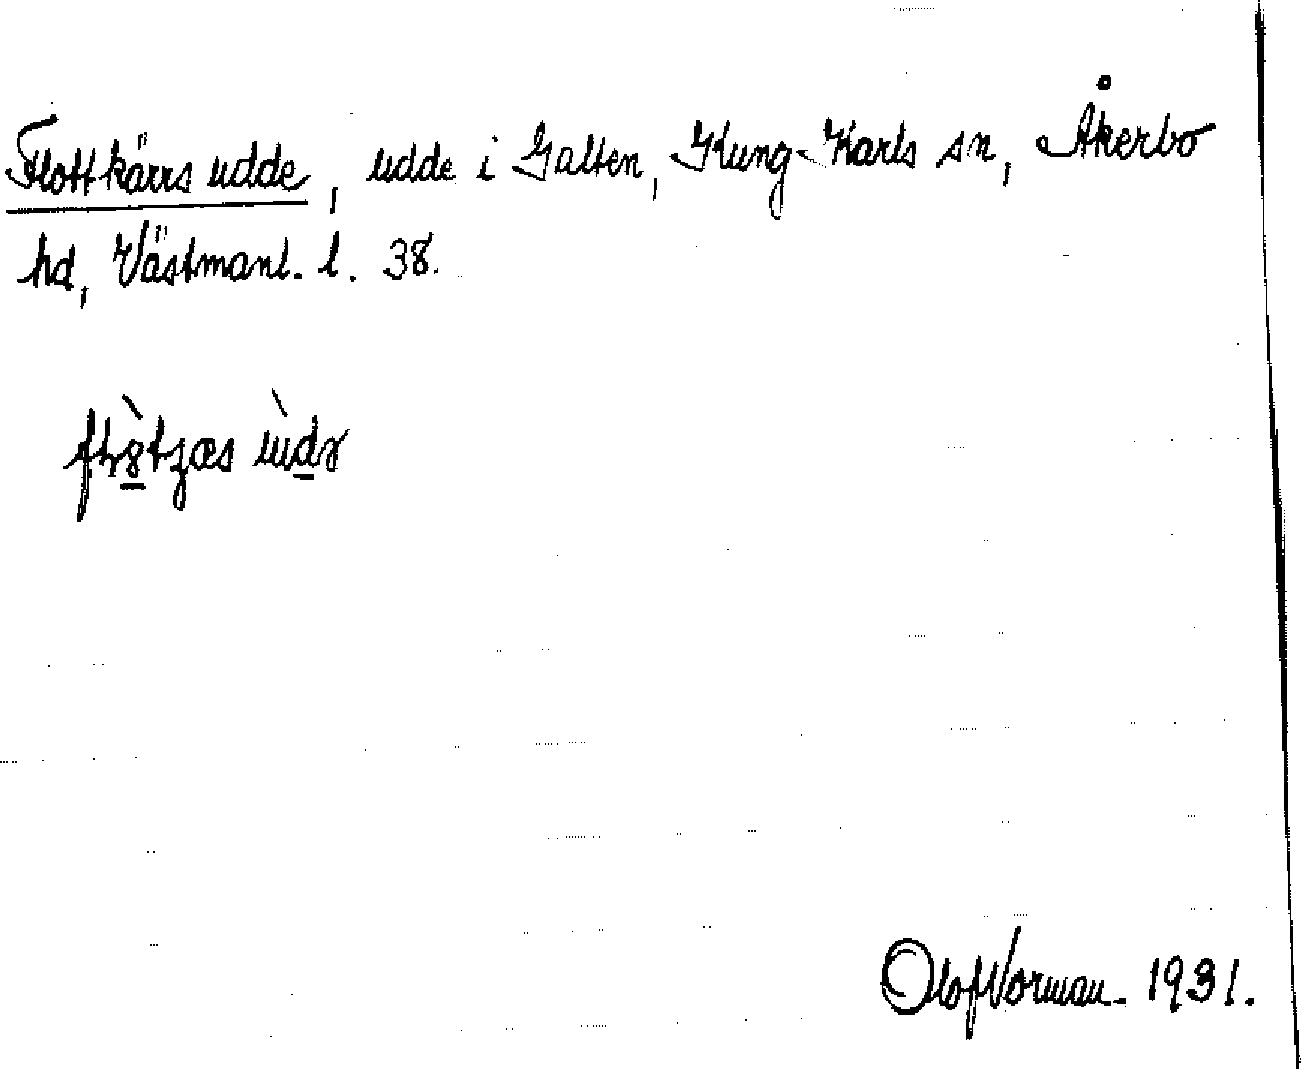 Flottkärrs udde, udde i Galten, Kung-Karls sn, Åkerbo
hd, Västmanl. l. 38.
Olof Norman. 1931.